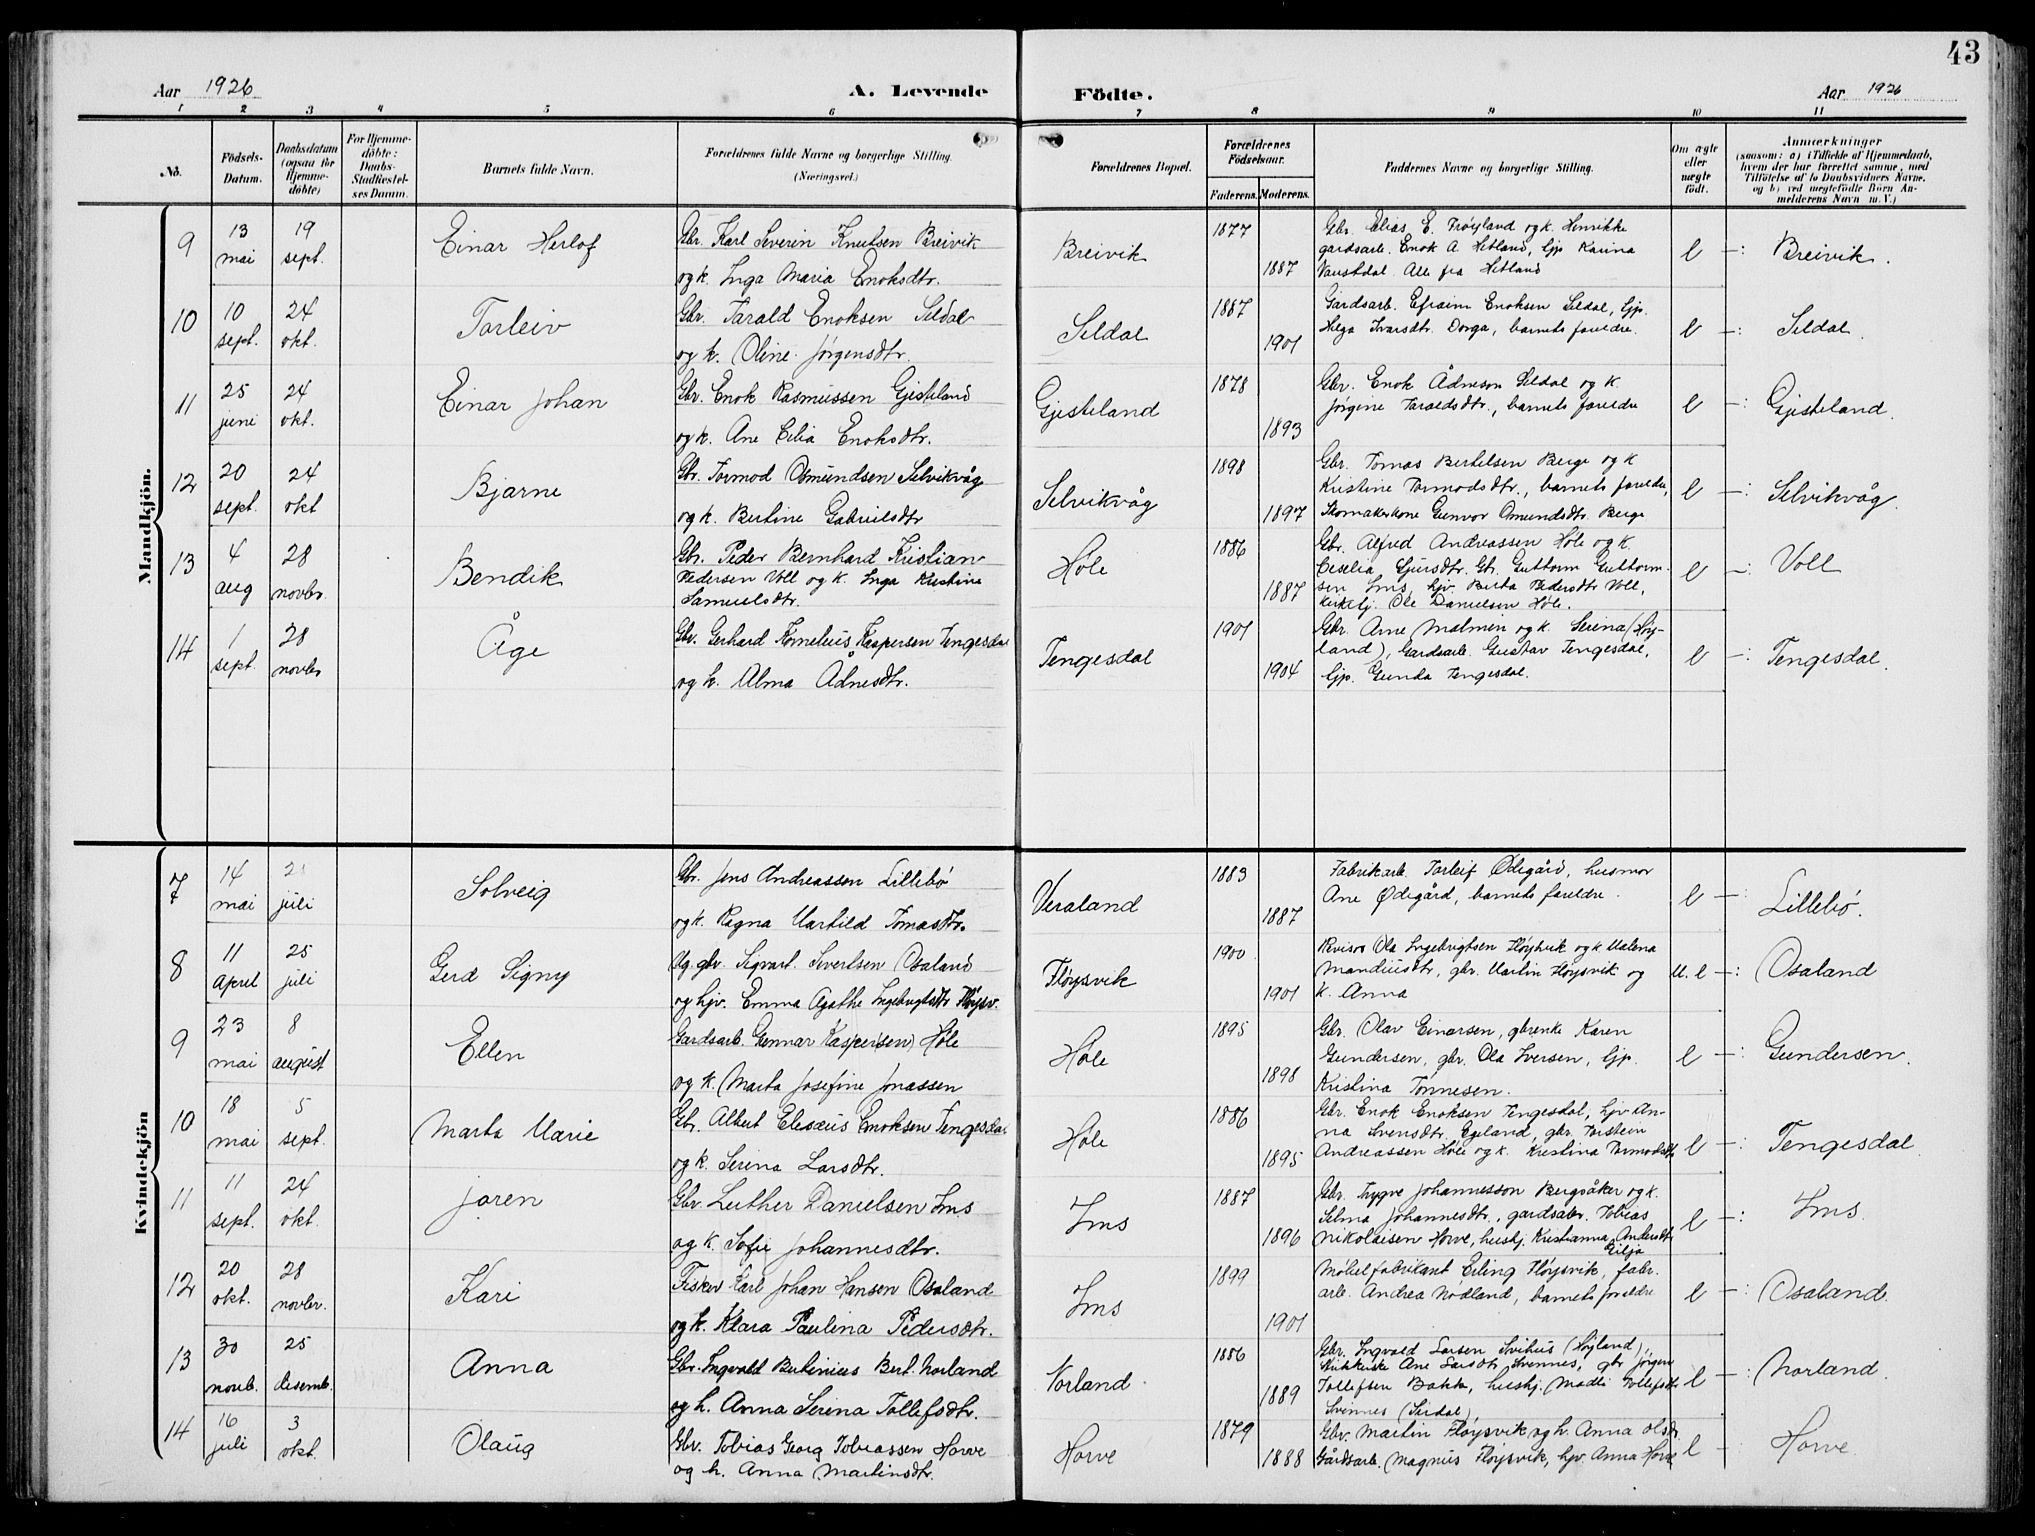 43
Aar 1926 A. Levende Födte. Aar 1926
1 2 3 4 5 6 7 8 9 10 11
No.
Födsels-Datum.
Daabsdatum (ogsaa for Hjemmedöbte)
For Hjemmedöbte: Daabs-Stadfæstelses Datum.
Barnets fulde Navn.
Forældrenes fulde Navne og borgerlige Stilling.
(Næringsvei.)
Forældrenes Bopæl.
Forældrenes Födselsaar.
Faderens. Moderens.
Faddernes Navne og borgerlige Stilling.
Om ægte eller uægte født.
Anmærkninger
(saasom: a) i Tilfælde af Hjemmedaab,
hvem der har forrettet samme, med
Tilföielse af to Daabsvidners Navne,
og b) ved uægtefödte Börn Anmelderens Navn m. V.)
Mandkjön.
9
13 mai
19 sept.
Einar Herlof
Gbr. Karl Severin Knutsen Breivik
og k. Inga Maria Enoksdtr.
Breivik
1877
1887
Gbr. Elias E. Frøyland og k. Henrikke
gardsarb. Enok A Hetland, Gjp Karina
Vaustdal. Alle fra Hetland
l —: Breivik.
10
10 sept.
24 okt.
Torleiv
Gbr. Tarald Enoksen Seldal
og k. Oline Jørgensdtr.
Seldal
1887
1901
Gardsarb. Efraim Enoksen Seldal, Gjp.
Helga Ivarsdtr. Dorga, barnets foreldre.
l —: Seldal.
11
25 juni
24 okt.
Einar Johan
Gbr. Enok Rasmussen Gjesteland
og k. Ane Celia Enoksdtr.
Gjesteland
1878
1893
Gbr. Enok Ådneson Seldal og k.
Jørgine Taraldsdtr., barnets foreldre
l —: Gjesteland.
12
20 sept.
24 okt
Bjarne
Gbr. Tormod Osmundsen Selvikvåg
og k. Bertine Gabrielsdtr
Selvikvåg
1898
1897
Gbr. Tomas Bertelsen Berge og k
Kristine Tormodsdtr., barnets foreldre,
Skomakerkone Gunvor Omundsdtr. Berge
l —: Selvikvåg.
13
4 aug
28 novbr.
Bendik
Gbr. Peder Bernhard Kristian
Pedersen Voll og k. Inga Kristine
Samuelsdtr.
Høle
1886
1887
Gbr. Alfred Andreassen Høle og k.
Ceselia Sjursdtr. Gbr. Guttorm Guttorm-
sen Ims, hjv. Berta Pedersdtr Voll,
kirkesj. Ole Danielsen Høle.
l —: Voll
14
1 sept.
28 novbr
Åge
Gbr. Gerhard Kornelius Kaspersen Tengesdal
og k. Alma Ådnesdtr.
Tengesdal
1901
1904
Gbr. Arne Malmin og k. Serina (Høy-
land), Gardsarb. Gustav Tengesdal,
Gjp. Gunda Tengesdal.
l —: Tengesdal.
Kvindekjön
7
14 mai
juli
Solveig
Gbr. Jens Andreassen Lillebø
og k. Ragna Martild Tomasdtr.
Veraland
1883
1887
Fabrikarb. Torleif Ødegård, husmor
Ane Ødegård, barnets foreldre.
l —: Lillebø.
8
11 April
25 juli
Gerd Signy
Ug. gbr. Sigvart Sivertsen Osaland
og hjv. Emma Agathe Ingebrigtsdtr Fløysv.
Fløysvik
1900
1901
Revisor Ola Ingebrigtsen Fløysvik og k Malena
Mandiusdtr, gbr. Martin Fløysvik og
k. Anna
u.l —: Osaland
9
23 mai
8 august
Ellen
Gardsarb. Gunnar Kaspersen Høle
og k. Marta Josefine Jonassen
Høle
1895
1898
Gbr. Olav Einarsen, gbrenke Karen
Gundersen, gbr. Ola Iversen, Gjp.
Kristina Tønnesen.
l —: Gundersen.
10
18 mai
5 sept.
Marta Marie
Gbr. Albert Eleseus Enoksen Tengesdal
og k. Serina Larsdtr.
Høle
1886
1895
Gbr. Enok Enoksen Tengesdal, hjv An-
na Svensdtr. Egeland, gbr. Torstein
Andreassen Høle og k. Kristina Tormodsdtr
l —: Tengesdal
11
11 sept.
24 okt.
Joren
Gbr Luther Danielsen Ims
og k. Sofie Johannesdtr.
Ims
1887
1896
Gbr. Trygve Johannesson Bergsåker og k.
Selma Johannesdtr., gardsabr. Tobias
Nikolaisen Horve, hushj. Kristianna Andersdtr
Gilja
l —: Ims.
12
20 okt.
28 novbr.
Kari
Fisker Karl Johan Hansen Osaland
og k. Klara Paulina Pedersdtr.
Ims
1899
1901
Møbelfabrikant Erling Fløysvik, fabr.
arb. Andrea Nødland, barnets foreldre
l —: Osaland.
13
30 novb.
25 desemb.
Anna
Gbr. Ingvald Bertinius Bert. Norland
og h. Anna Serina Tollefsdtr.
Norland
1886
1889
Gbr. Ingvald Larsen Svihus (Høyland),
Ane Larsdtr Svennes, gbr Jørgen
Tollefsen Bakk, hushj. Madli Tollefsdtr
Svennes (Sirdal)
l —: Norland.
14
16 juli
3 okt.
Olaug
Gbr. Tobias Georg Tobiassen Horve
og h. Anna Martinsdtr.
Horve
1879
1888
Gbr. Martin Fløysvik og h. Anna Olsdtr
Gårdsarb. Magnus Fløysvik, hjv. Anna Horve
l —: Horve.